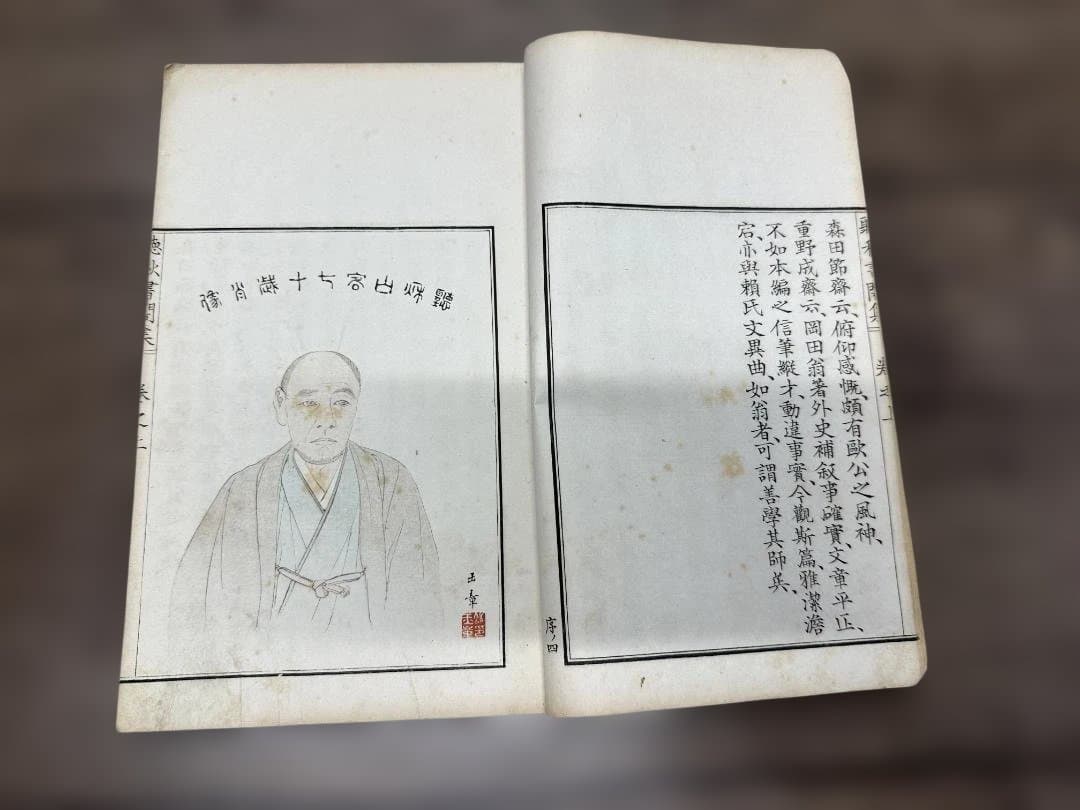 聽秋書閣集 卷之上
森田節齋云、俯仰感慨、頗有歐公之風神、
重野成齋云、岡田翁著外史補叙事確實、文章平正、
不如本編之信筆縱才、動違事實、今觀斯篇、雅潔澹
宕、亦與賴氏文異曲、如翁者、可謂善學其師矣、
序ノ四
聽秌山客七十歲肖像
玉章
聽秋書閣集 卷之上